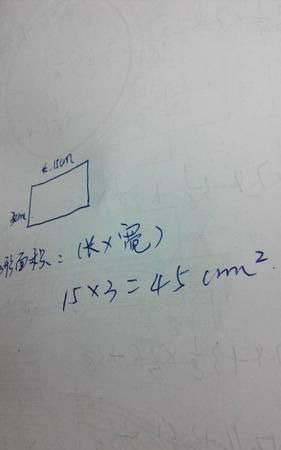 长 15cm
3cm
形面积：（长×宽）
15×3=45cm²